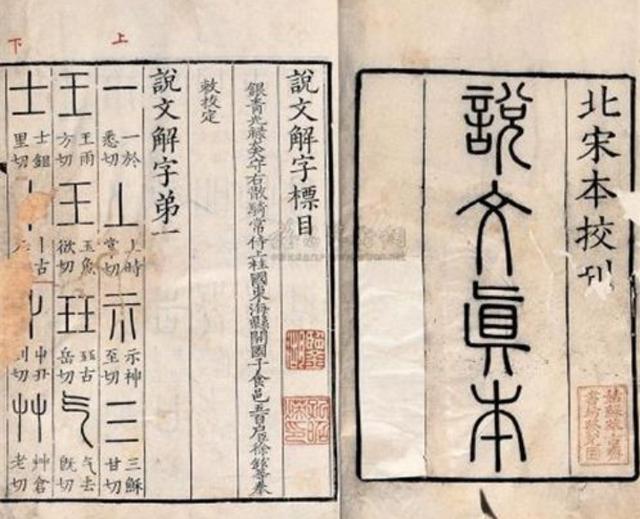 北宋本挍刊
說文眞本
說文解字標目
銀青光祿大夫守右散騎常侍上柱國東海縣開國子食邑五百戶臣徐鉉等奉
敕校定
說文解字弟一
上
一 一於悉切 丄 上時掌切 示 示神至切 三 三穌甘切
王 王雨方切 王 玉魚欲切 玨 玨古岳切 气 气去既切
下
士 士鉏里切 丨 丨古 屮 屮丑列切 艸 艸倉老切